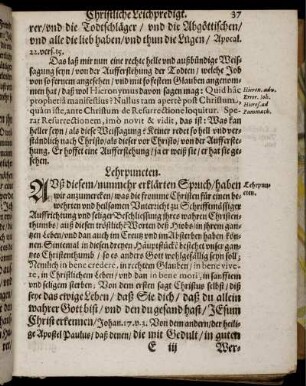 Christliche Leichpredigt. 37
rer/ vnd die Todtschläger / vnd die Abgöttischen/
vnd alle die lieb haben/ vnd thun die Lugen/ Apocal.
22. vers. 15.
Das laß mir nun eine rechte helle vnd außbündige Weis-
sagung seyn / von der Aufferstehung der Todten/ welche Job
von so fernem angesehen / vnd mit so festem Glauben angenom-
men hat/ daß wol Hieronymus davon sagen mag: Quid hâc
prophetiâ manifestius? Nullus tam apertè post Christum,
quàm iste, ante Christum de Resurrectione loquitur. Spe-
rat Resurrectionem, imò novit & vidit, das ist: Was kan
heller seyn/ als diese Weissagung? Keiner redet so hell vnd ver-
ständlich nach Christo/ als dieser vor Christo/ von der Aufferste-
hung. Er hoffet eine Aufferstehung/ ja er weiß sie/ er hat sie ge-
sehen.
Hieron. adv.
Error. Ioh.
Hieros. ad
Pammach.
Lehrpuncten.
AVß diesem/ nunmehr erklärten Spruch/ haben
wir anzumercken/ was die fromme Christen für einen be-
wehrten vnd heilsamen Vnterricht zu
Auffrichtung vnd seliger Beschliessung ihres wahren Christen-
thumbs/ auß diesen tröstlichen Worten deß Hiobs in ihrem gan-
tzen Leben/ vnd dan auch im Creutz vnd im Absterben haben kön-
nen. Sintemal in diesen dreyen Hauptstücken bestehet vnser gan-
tzes Christenthumb / so es anders Gott wohlgefällig seyn soll;
Nemlich in bene credere, in rechtem Glauben/ in bene vive-
re, in Christlichem Leben/ vnd dan in bene mori, in sanfftem
vnd seligem Sterben; Von dem ersten sagt Christus selbst/ diß
seye das ewige Leben/ daß Sie dich/ daß du allein
wahrer Gott bist/ vnd den du gesand hast/ JEsum
Christ erkennen/ Johan. 17. v. 3. Von dem andern/ der heili-
ge Apostel Paulus/ daß denen/ die mit Gedult / in guten
Lehrpun-
cten.
E iij Wer-